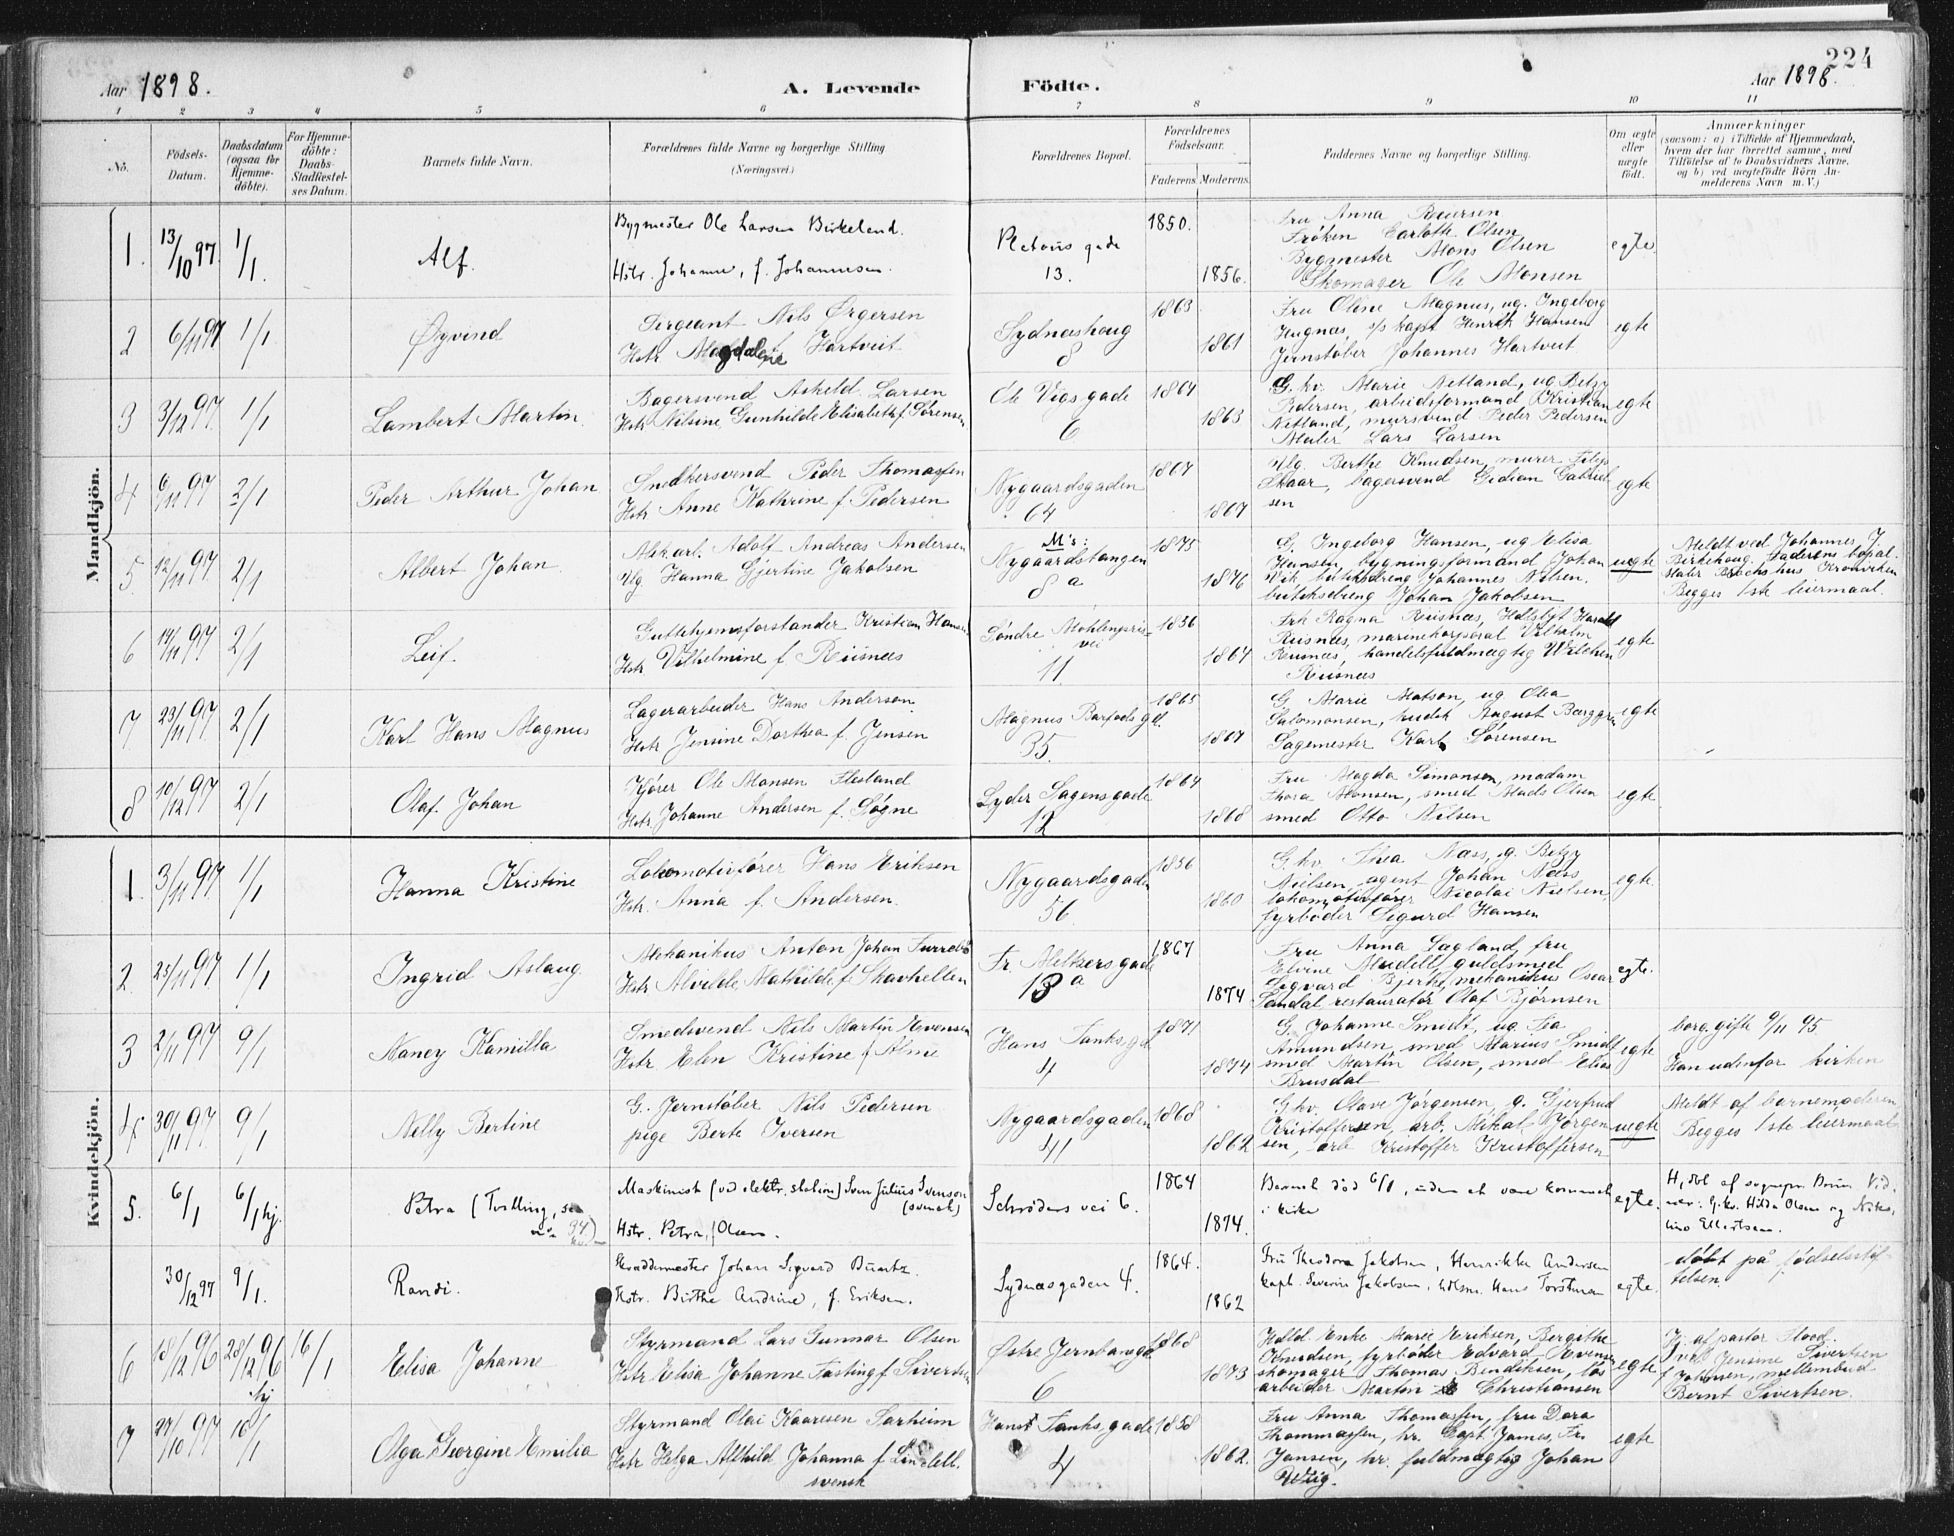 224
Aar 1898.
A. Levende
Födte.
Aar 1898.
1 2 3 4 5 6 7 8 9 10 11
No.
Födsels-
Datum.
Daabsdatum
(ogsaa for
Hjemme-
döbte).
For Hjemme-
döbte:
Daabs-
Stadfæstel-
ses Datum.
Barnets fulde Navn.
Forældrenes fulde Navne og borgerlige Stilling
(Næringsvei.)
Forældrenes Bopæl.
Forældrenes
Födselsaar.
Faderens Moderens
Faddernes Navne og borgerlige Stilling.
Om ægte
eller
uægte
födt.
Anmærkninger
(saasom: a) i Tilfælde af Hjemmedaab,
hvem der har forrettet samme, med
Tilföielse af to Daabsvidners Navne,
og b) ved uægtefödte Börn An-
melderens Navn m. V.)
Mandkjön.
1. 13/10 97. 1/1. Alf.
Bygmester Ole Larsen Birkeland.
Hstr. Johanne, f. Johannesen.
gade
13.
1850.
1856.
Fru Anna
Frøken Olsen
Bygmester Mons Olsen
Skomager Ole Monsen
egte.
2 6/11 97 1/1 Øyvind
Sergeant Nils Ørgersen
Hstr Magdalene Hartveit
Sydneshaug
8
1863
1861
Fru Oline Magnus, ug. Ingeborg
s/s kapt Henrik Hansen
Jernstøber Johannes Hartveit
egte
3 3/12 97. 1/1 Lambert Martin.
Bagersvend Askeld Larsen
Hstr Nilsine Gunhilde Elisabeth f. Sørensen
Ole Vigs gade
6
1864
1863
G. kv. Marie Netland, ug Betzy
Pedersen, arbeidsformand Kristian
Netland, mursvend Peder Pedersen
Maler Lars Larsen
egte
4 6/11 97 2/1 Peder Arthur Johan
Snedkersvend Peder Thomassen
Hstr Anne Kathrine f. Pedersen
Nygaardsgaden
64
1867
1867
Ug. Berthe Knudsen, murer
Skaar, bagersvend Gidian Gabriel
sen
egte
5 12/11 97. 2/1 Albert Johan
Adolf Andreas Andersen
Ug. Hanna Gjertine Jakobsen
M's:
Nygaardstangen
8 a
1875
1876
G. Ingeborg Hansen, ug Elisa
Hansen, bygningsformand Johan
Vik, Johannes Nilsen,
Johan Jakobsen
uegte
Meldt ved Johannes J.
Birkehaug. Faderens bopæl.
Begges 1ste leiermaal.
6 14/11 97. 2/1 Leif.
Guttehjemsforstander Kristian Hansen
Hstr Vilhelmine f. Riisnæs
Søndre Møhlenpris
vei
11
1856
1864
Frk Ragna Riisnæs, Harald
Riisnæs, marinekorporal Vilhelm
Riisnæs, handelsfuldmægtig
Riisnæs
egte
7 23/11 97 2/1 Karl Hans Magnus
Lagerarbeider Hans Anderson
Hstr Jensine Dorthea f. Jensen
Magnus Barfods gd.
35.
1865
1867
G. Marie Matson, ug. Olea
Salomonsen, August
Sagemester Karl Sørensen
egte
8 10/12 97 2/1 Olaf Johan
Kjører Ole Monsen Flesland
Hstr. Johanne Andersen f. Søgne
Lyder Sagens gade
12
1864
1868
Fru Magda Simonsen, madam
Thora Monsen, smed Mads Olsen
smed Otto Nilsen
egte
Kvindekjön.
1. 3/11 97 1/1 Hanna Kristine
Lokomotivfører Hans Eriksen
Hstr. Anna f. Andersen.
Nygaardsgaden
56
1856
1860
G. kv. Thea Næss, g. Betzy
Nielsen, agent Johan Næss
lokomotivfører Nicolai Nielsen,
fyrbøder Sigurd Hansen
egte.
2. 25/11 97 1/1 Ingrid Aslaug.
Mekanikus Anton Johan
Hstr Alvilde Mathilde f. Skavhellen
Fr. Meltzers gade
13 a
1867
1874
Fru Anna Sagland, fru
Elvine guldsmed
Sigvard Bjerke, mekanikus Oscar
Sandal restauratør Olaf Bjørnsen
egte.
3 2/11 97 9/1 Nancy Kamilla
Smedsvend Nils Martin Evensen
Hstr. Elen Kristine f. Alme
Hans Tanks gd
4
1871
1874
G. Johanne Smidt, ug. Tea
Amundsen, smed Marius Smidt
smed Martin Olsen, smed Elias
Brusdal
egte
borg. gift 9/11 95.
Han udenfor kirken
4. 30/11 97. 9/1 Nelly Bertine
G. Jernstøber Nils Pedersen
pige Berte Iversen
Nygaardsgaden
41
1868
1862
G. kv. Olave Jørgensen, g. Gjertrud
Kristoffersen, arb. Mikal Jørgen
sen, arb Kristoffer Kristoffersen
uegte
Meldt af barnemoderen
Begges 1ste leiermaal
5. 6/1 6/1 hj. Petra (Tvilling, se
Maskinist (ved elektr. station) Sven Julius Svenson
(svensk)
Hstr. Petra, f Olsen.
Schrøders vei 6.
1864
1874.
Barnet død 6/1, uden at være kommet
i kirke
egte.
H, døbt af sognepr. Vid-
ner: G.kv. Hilda Olsen og
Ellertsen.
30/12 97 9/1. Randi.
Skreddermester Johan Sigvard
Hstr. Birthe Andrine, f. Eriksen.
Sydnæsgaden 4.
1864.
1862
Fru Theodora Jakobsen, Henrikke Andersen
kapt. Severin Jakobsen, Hans Torstensen
egte.
døbt på fødselsstif
telsen.
6 18/12 96 23/12 96 hj 16/1 Elisa Johanne
Styrmand Lars Gunnar Olsen
Hstr Elisa Johanne Fasting f Sivertsen
Østre Jernbanegd
6
1868
1873
Enke Marie Eriksen, Bergithe
Knudsen, fyrbøder Edvard Evensen
skomager Thomas Bendiksen, løs
arbeider Morten Christiansen
egte
Hj. af pastor Flood.
Jensine Sivertsen
f Johnsen, mellembud
Bernt Sivertsen.
7 27/10 97 16/1 Olga Georgine Emilia
Styrmand Olai Kaaresen Sørheim
Hstr Helga Alfhild Johanna f. Lindell.
svensk
Hans Tanks gade
4
1858
1862.
Fru Anna Thomassen, fru Dora
Thommassen, hr. Capt James, Fr.
Jansen, hr. fuldmægtig Johan
Wiig.
egte